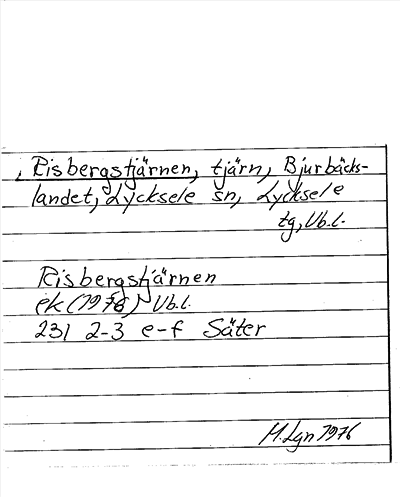 , Risbergstjärnen, tjärn, Bjurbäcks-
landet, Lycksele sn, Lycksele
tg, Vb.l.
Risbergstjärnen
ek (1976) Vb.l.
231 2-3 e-f Säter
M.Lgn 1976